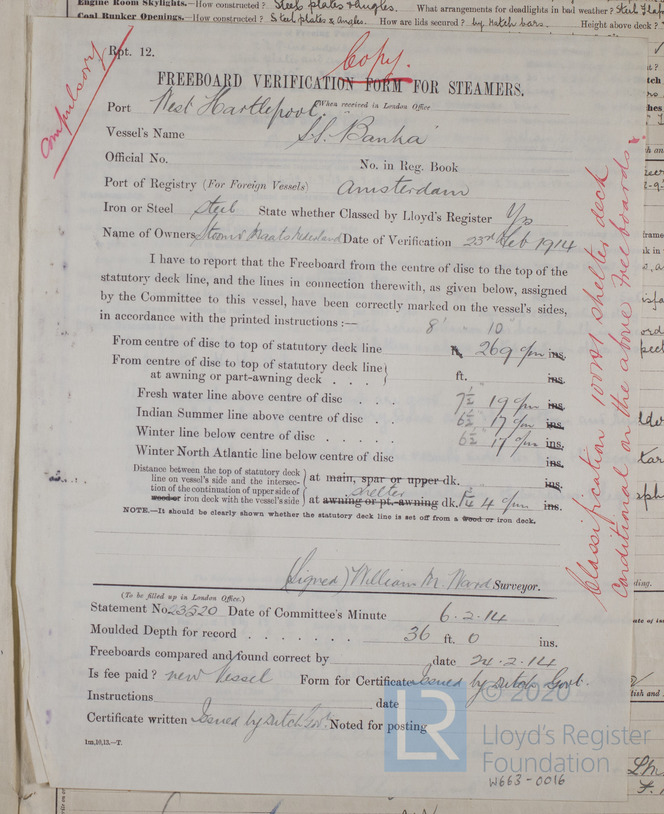 Engine Room Skylights.—How constructed? Steel plates & angles. What arrangements for deadlights in bad weather? Steel flaps
Coal Bunker Openings.—How constructed? Steel plates & angles. How are lids secured? by hatch bars. Height above deck?
Compulsory
Rpt. 12.
Copy.
FREEBOARD VERIFICATION FORM FOR STEAMERS.
Port West Hartlepool When received in London Office
Vessel's Name S.S. "Banka"
Official No. No. in Reg. Book
Port of Registry (For Foreign Vessels) Amsterdam
Iron or Steel Steel State whether Classed by Lloyd's Register Yes
Name of Owners Stoomv Maats Nederland Date of Verification 23rd Feb 1914
I have to report that the Freeboard from the centre of disc to the top of the
statutory deck line, and the lines in connection therewith, as given below, assigned
by the Committee to this vessel, have been correctly marked on the vessel's sides,
in accordance with the printed instructions:—
8' 10
From centre of disc to top of statutory deck line ft. 269 c/m ins.
From centre of disc to top of statutory deck line
at awning or part-awning deck . . . ft. ins.
Fresh water line above centre of disc . . . 7½ 19 c/m ins.
Indian Summer line above centre of disc . . 6½ 17 c/m ins.
Winter line below centre of disc . . . . . 6½ 17 c/m ins.
Winter North Atlantic line below centre of disc ins.
Distance between the top of statutory deck
line on vessel's side and the intersec-
tion of the continuation of upper side of
wood or iron deck with the vessel's side
at main, spar or upper dk. ins.
shelter
at awning or pt.-awning dk. 4 c/m ins.
NOTE.—It should be clearly shown whether the statutory deck line is set off from a wood or iron deck.
Classification 100A1 shelter deck
Conditional on the above freeboards.
(Signed) William M. Ward Surveyor.
(To be filled up in London Office.)
Statement No. 23520 Date of Committee's Minute 6.2.14
Moulded Depth for record . . . . . . . 36 ft. 0 ins.
Freeboards compared and found correct by date 24.2.14
Is fee paid? new Vessel Form for Certificate Issued by Dutch Govt.
Instructions date
Certificate written Issued by Dutch Govt. Noted for posting
1m,10,13.—T.
LR
© 2020
Lloyd's Register
Foundation
W663-0016